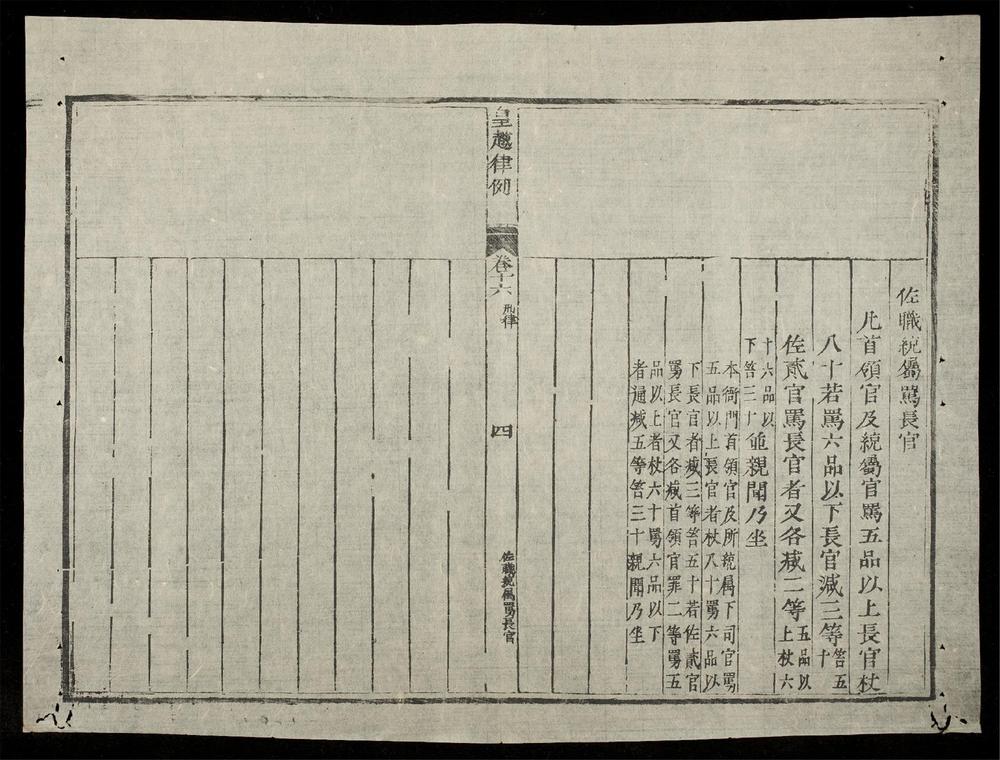 佐職統屬罵長官
凡首領官及統屬官罵五品以上長官杖
八十若罵六品以下長官減三等笞五十
佐貳官罵長官者又各減二等五品以上杖六
十六品以下笞三十並親聞乃坐
本衙門首領官及所統屬下司官罵
五品以上長官者杖八十罵六品以
下長官者减三等笞五十若佐貳官
罵長官又各减首領官罪二等罵五
品以上者杖六十罵六品以下
者通减五等笞三十親聞乃坐
皇越律例
卷十六
刑律
四
佐職統屬罵長官